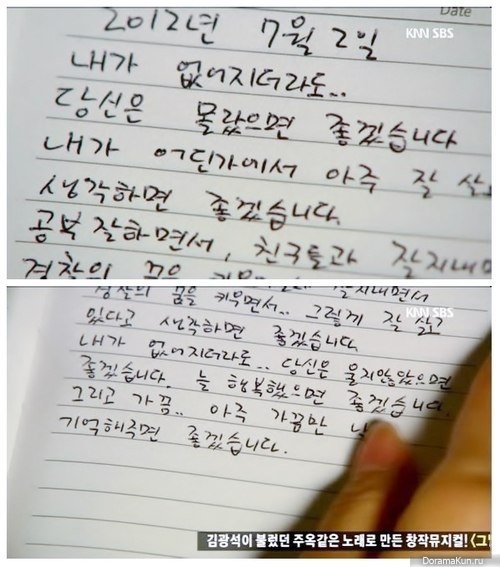 Date
KNN SBS
2012년 7월 2일
내가 없어지더라도..
당신은 몰랐으면 좋겠습니다
내가 어딘가에서 아주 잘 살고
생각하면 좋겠습니다.
공부 잘하면서, 친구들과 잘지내면
경찰의 꿈을
잘지내면서
경찰의 꿈을 키우면서.. 그렇게 잘 살고
KNN SBS
있다고 생각하면 좋겠습니다.
내가 없어지더라도.. 당신은 울지않았으면
좋겠습니다. 늘 행복했으면 좋겠습니다.
그리고 가끔.. 아주 가끔만
기억해주면 좋겠습니다.
김광석이 불렀던 주옥같은 노래로 만든 창작뮤지컬! <그
DoramaKun.ru